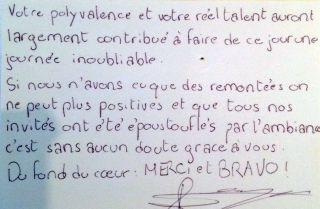 Votre polyvalence et votre réel talent auront
largement contribué à faire de ce jour une
journée inoubliable.
Si nous n'avons eu que des remontées on
ne peut plus positives et que tous nos
invités ont été époustouflés par l'ambiance
c'est sans aucun doute grace à vous.
Du fond du cœur : MERCI et BRAVO !